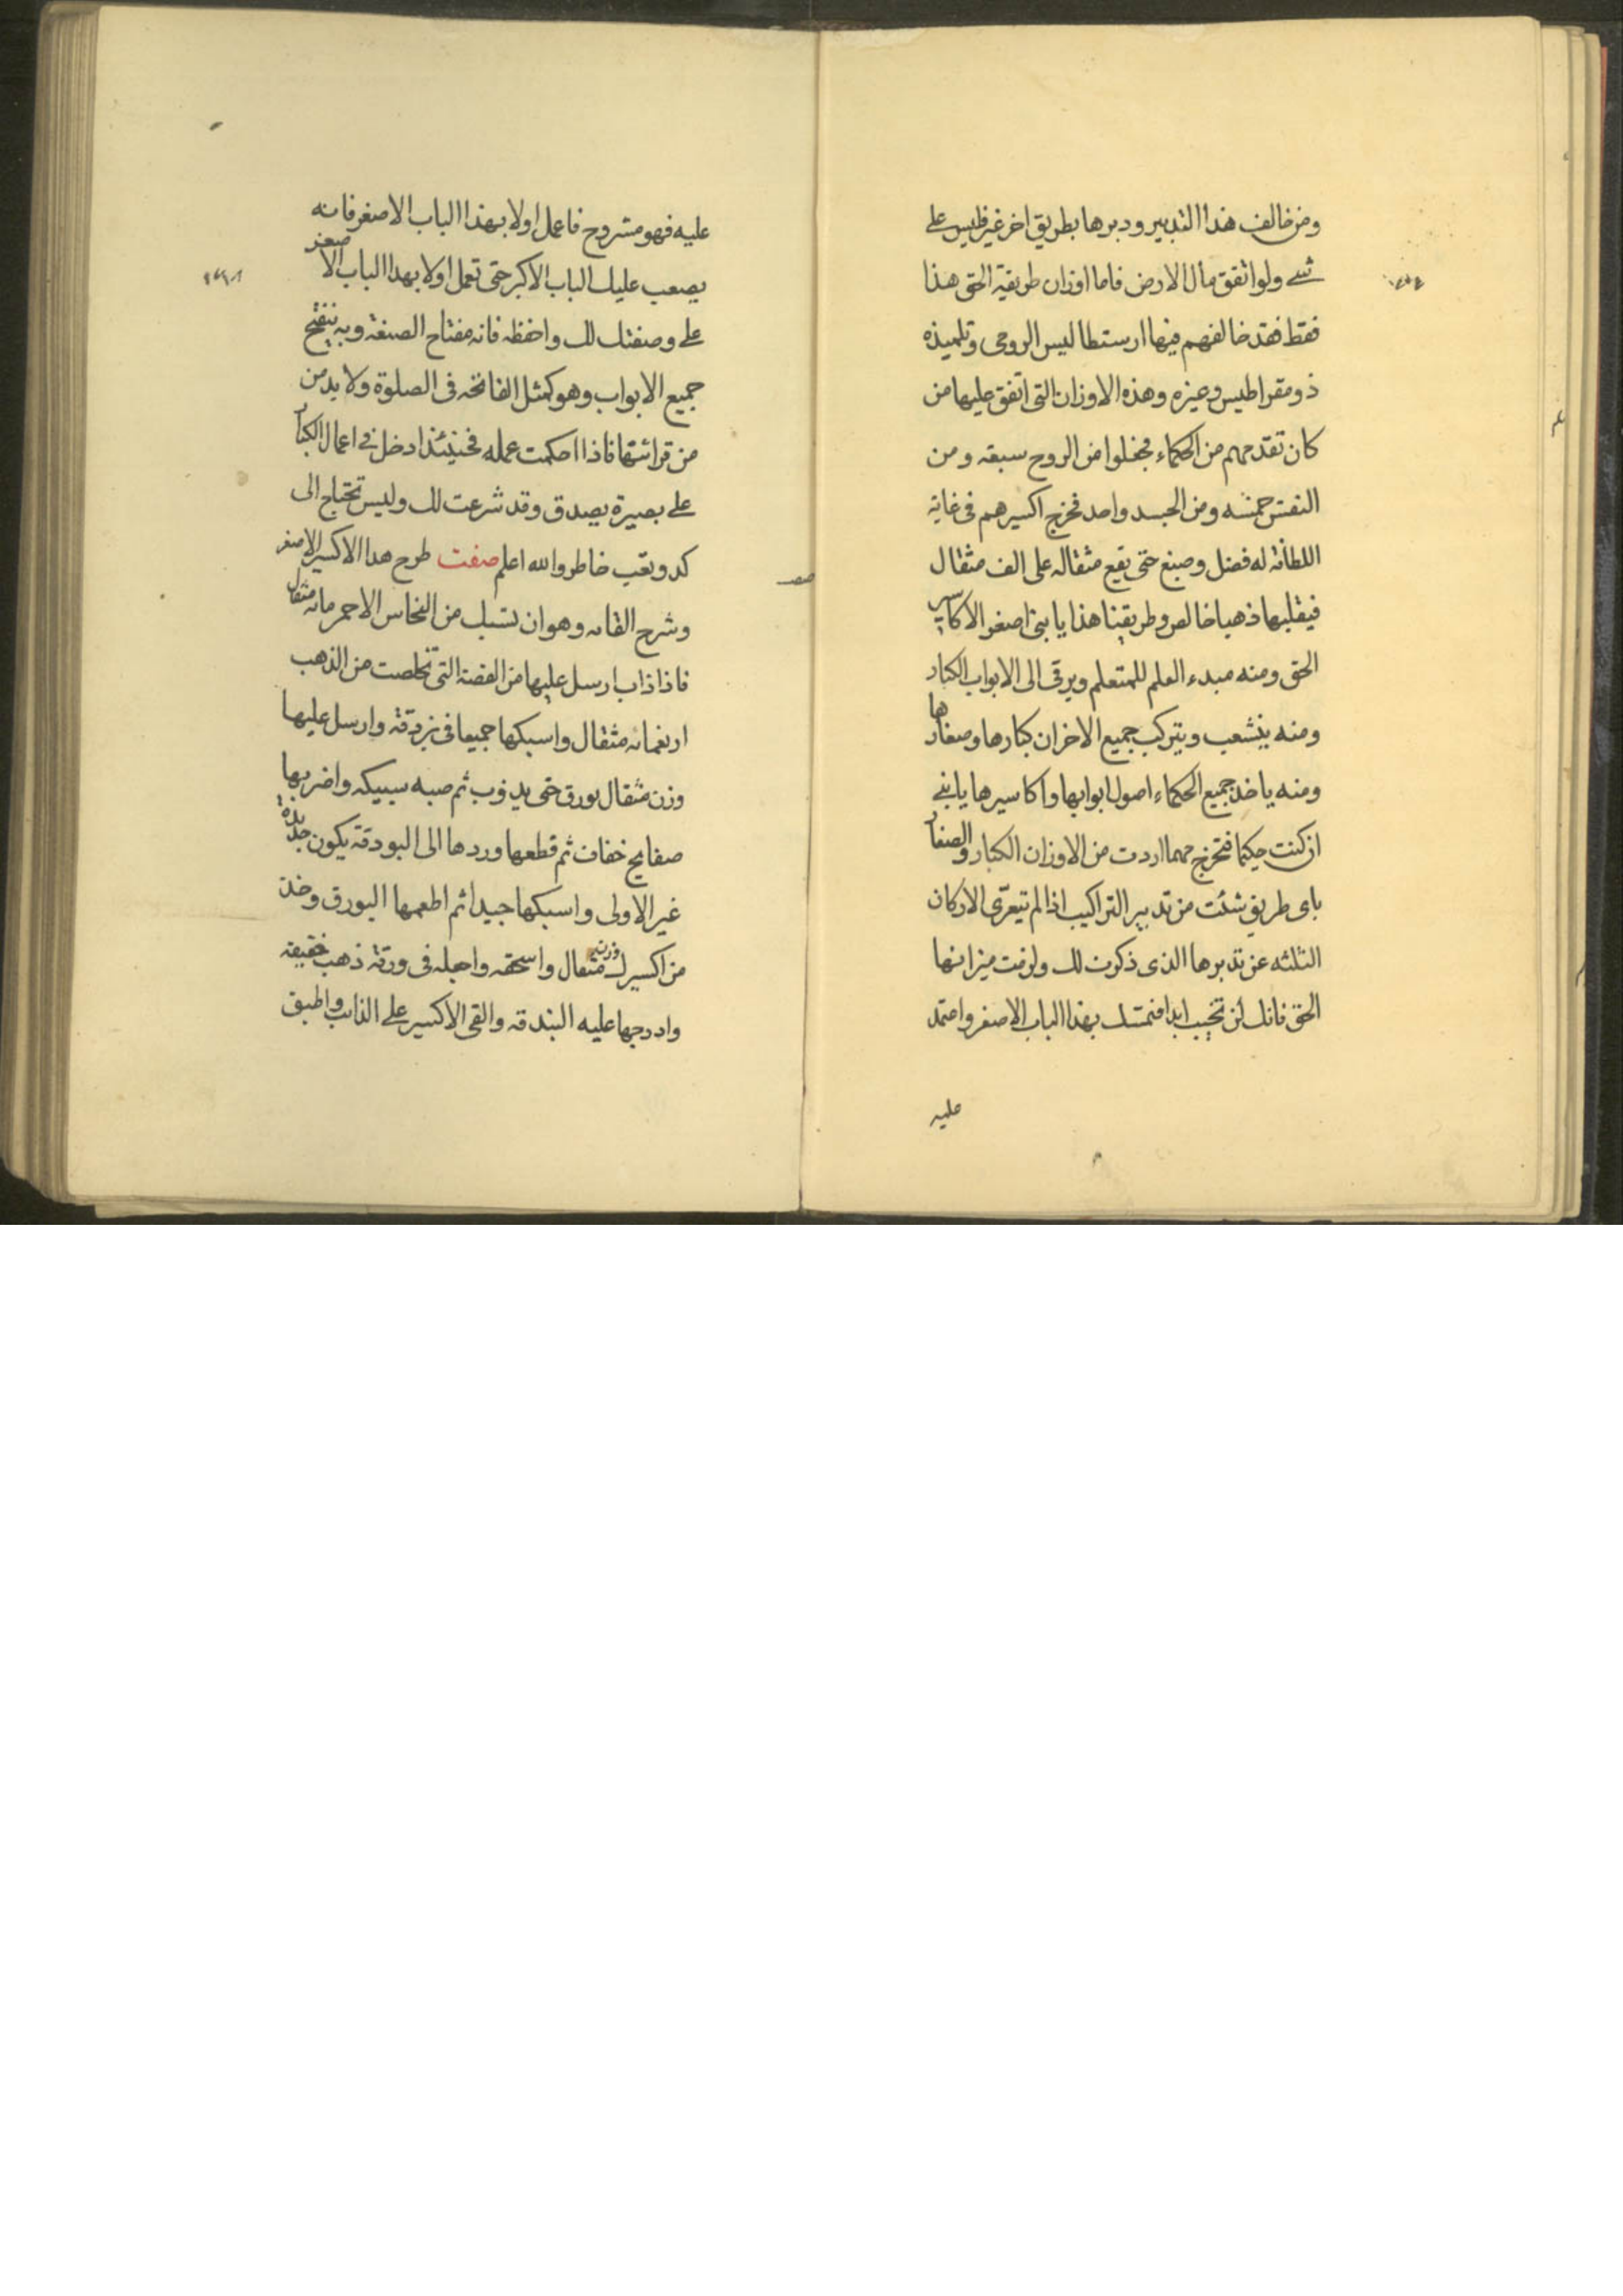 ومن خالف هذا التدبير ودبرها بطريق اخر غير فليس على
شے ولو انفق مال الارض فاما اوزان طريقة الحق هذا
فقط فقد خالفهم فيها ارستطاليس الرومى وتلميذه
ذومقراطيس وغيره وهذه الاوزان التى اتفق عليها من
كان تقدمهم من الحكماء فجعلوا من الروح سبعه ومن
النفس خمسه ومن الجسد واحد فخرج اكسيرهم فى غاية
اللطافة له فضل وصبغ حتى يقع مثقاله على الف مثقال
فيقلبها ذهبا خالص وطريقنا هذا يا بنى اصغر الاكاسير
الحق ومنه مبدء العلم للمتعلم ويرقى الى الابواب الكبار
ومنه ينشعب ويتركب جميع الاخران كبارها وصغارها
ومنه ياخذ جميع الحكماء اصول ابوابها واكاسيرها يا بنے
ان كنت حكيما فتخرج مهما اردت من الاوزان الكبار والصغار
باى طريق شئت من تدبير التراكيب اذا لم تتعرّى الاركان
الثلثه عن تدبرها الذى ذكرت لك ولزمت ميزانها
الحق فانك لن تخيب ابدا فتمسك بهذا الباب الاصغر واعتمد
عليه
عليه فهو مشروح فاعمل اولا بهذا الباب الاصغر فانه
يصعب عليك الباب الاكبر حتى تعمل اولا بهدا الباب الاصغر
على وصفتك لك واحفظه فانه مفتاح الصنعة وبه ينفتح
جميع الابواب وهو كمثل الفاتحه فى الصلوة ولا بد من
من قرائتها فاذا احكمت عمله فحينئذ ادخل فى اعمال الكبار
على بصيرة بصدق وقد شرعت لك وليس تحتاج الى
كد وتعب خاطر والله اعلم صفت طرح هدا الاكسير الاصغر
وشرح القاىه وهو ان تسبك من النحاس الاحمر مائه مثقال
فاذا ذاب ارسل عليها من الفضة التى تخلصت من الذهب
اربعمائه مثقال واسبكها جميعا فى بردقة وارسل عليها
وزن مثقال بورق حتى يدوب ثم صبه سبيكه واضربها
صفايح خفاف ثم قطعها وردها الى البودقة يكون جديدة
غير الاولى واسبكها جيدا ثم اطعمها البورق وخذ
من اكسيرك وزن مثقال واسحقه واجعله فى ورقة ذهب خفيفه
وادرجها عليه البندقه والقى الاكسير على الذائب واطبق